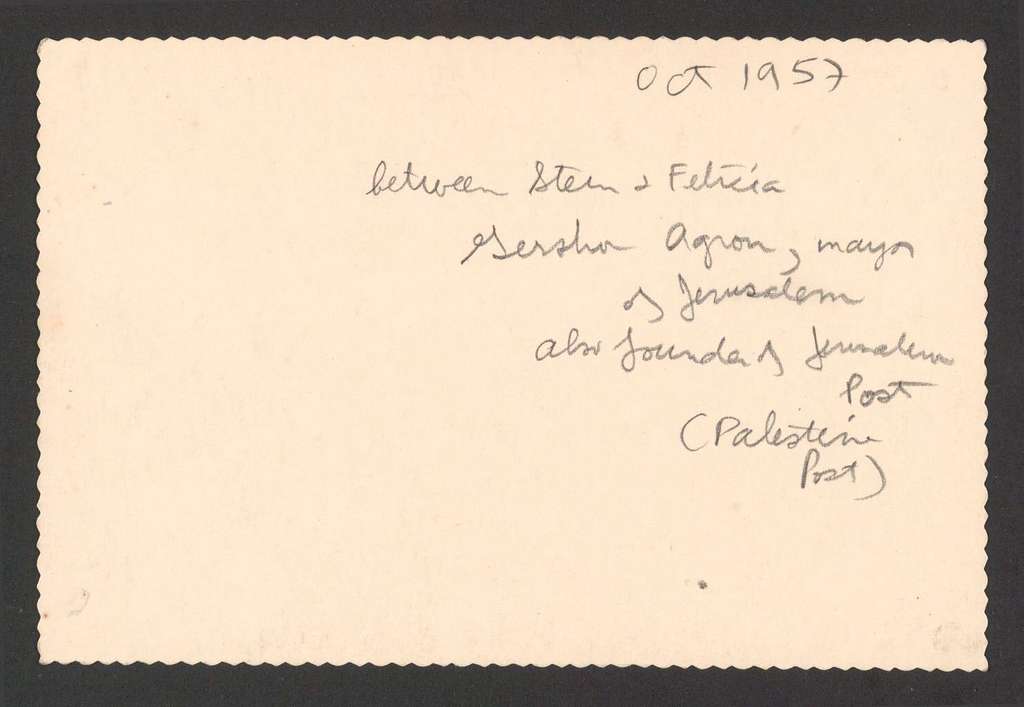 Oct 1957
between Stern & Felicia
Gershon Agron, mayor
of Jerusalem
also founder of Jerusalem
Post
(Palestine
Post)